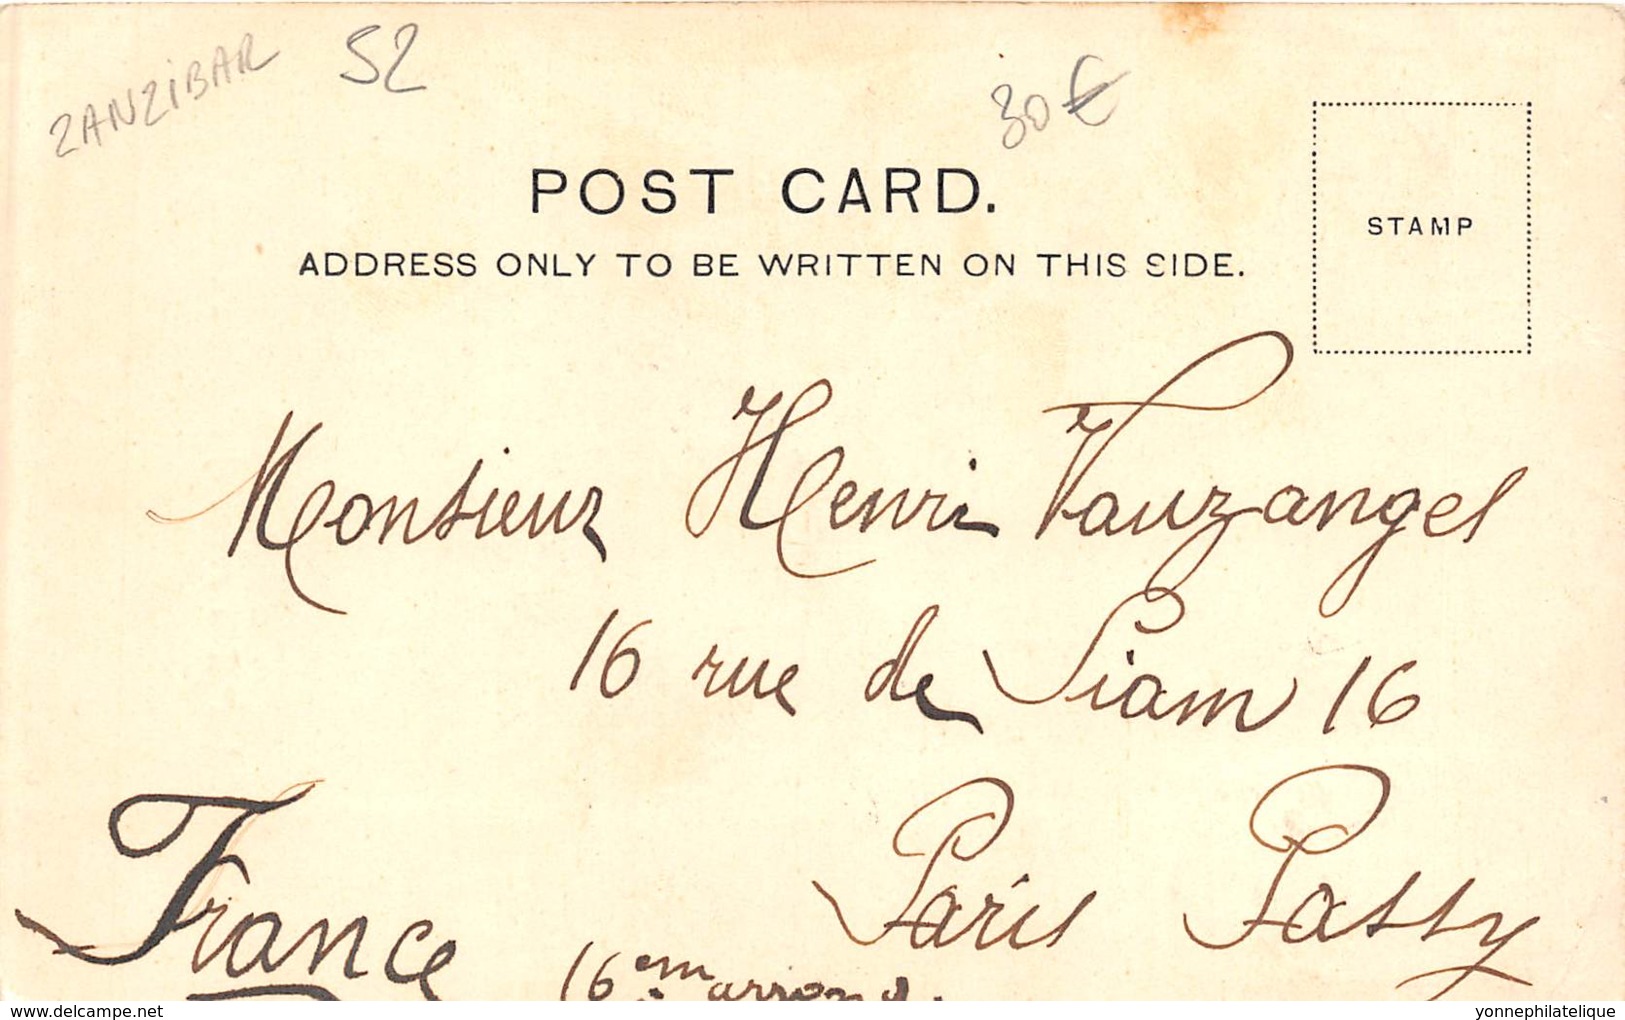 ZANZIBAR 52
30€
POST CARD.
STAMP
ADDRESS ONLY TO BE WRITTEN ON THIS SIDE.
Monsieur Henri Vauzanges
16 rue de Siam 16
Paris Passy
France
16em arrond.
delcampe.net
yonnephilatelique